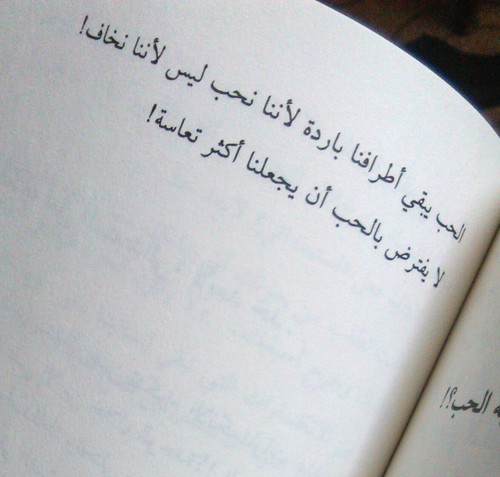 الحب يبقي أطرافنا باردة لأننا نحب ليس لأننا نخاف!
لا يفترض بالحب أن يجعلنا أكثر تعاسة!
الحب؟!